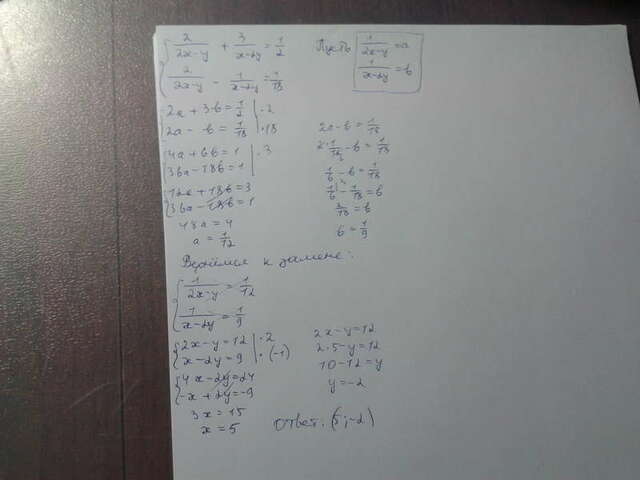 2/(2x-y) + 3/(x-2y) = 1/2
2/(2x-y) - 1/(x-2y) = 1/18
Пусть 1/(2x-y) = a
1/(x-2y) = b
2a + 3b = 1/2 | ·2
2a - b = 1/18 | ·18
4a + 6b = 1 | ·3
36a - 18b = 1
12a + 18b = 3
36a - 18b = 1
48a = 4
a = 1/12
2a - b = 1/18
2·1/12 - b = 1/18
1/6 - b = 1/18
1/6 - 1/18 = b
2/18 = b
b = 1/9
Вернёмся к замене:
1/(2x-y) = 1/12
1/(x-2y) = 1/9
2x - y = 12 | ·2
x - 2y = 9 | ·(-1)
4x - 2y = 24
-x + 2y = -9
3x = 15
x = 5
2x - y = 12
2·5 - y = 12
10 - 12 = y
y = -2
Ответ: (5; -2)